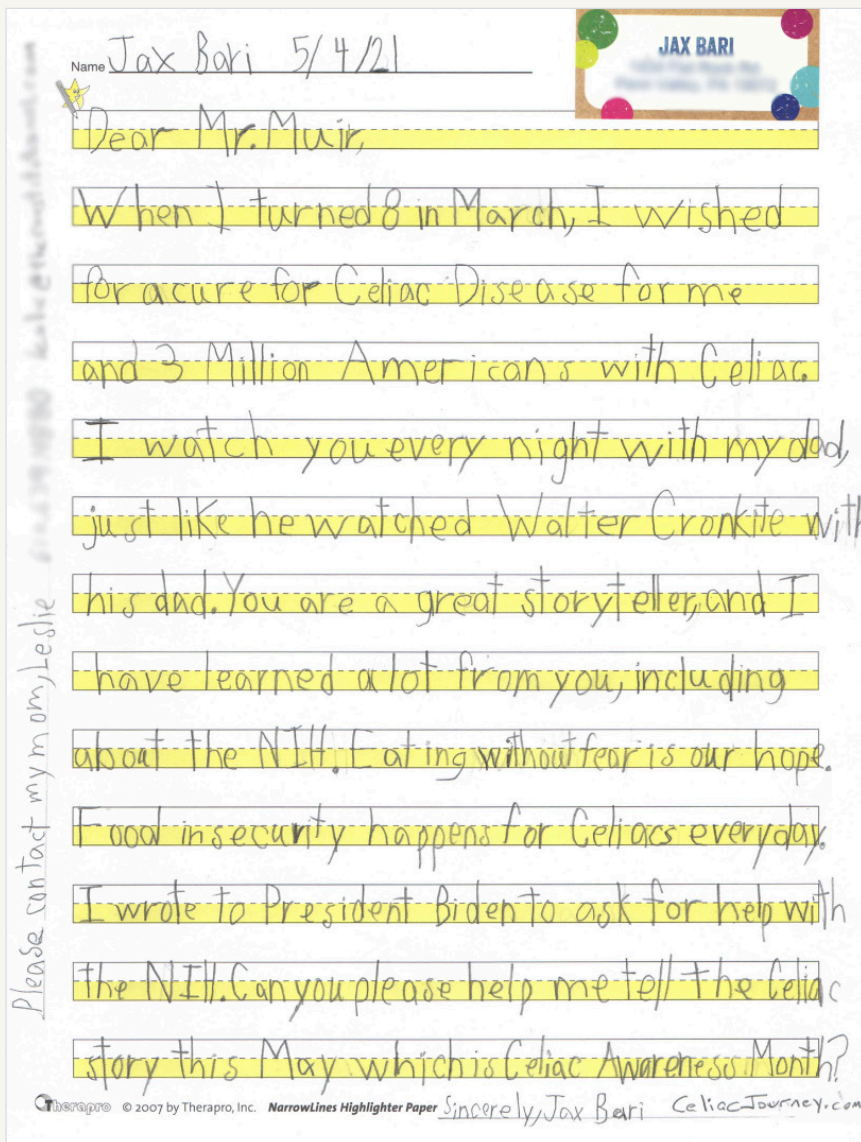 Name Jax Bari 5/4/21
JAX BARI
Dear Mr. Muir,
When I turned 8 in March, I wished
for a cure for Celiac Disease for me
and 3 Million Americans with Celiac.
I watch you every night with my dad,
just like he watched Walter Cronkite with
his dad. You are a great storyteller, and I
have learned a lot from you, including
about the NIH. Eating without fear is our hope.
Food insecurity happens for Celiacs everyday.
I wrote to President Biden to ask for help with
the NIH. Can you please help me tell the Celiac
story this May which is Celiac Awareness Month?
Therapro © 2007 by Therapro, Inc. NarrowLines Highlighter Paper Sincerely, Jax Bari CeliacJourney.com
Please contact my mom, Leslie